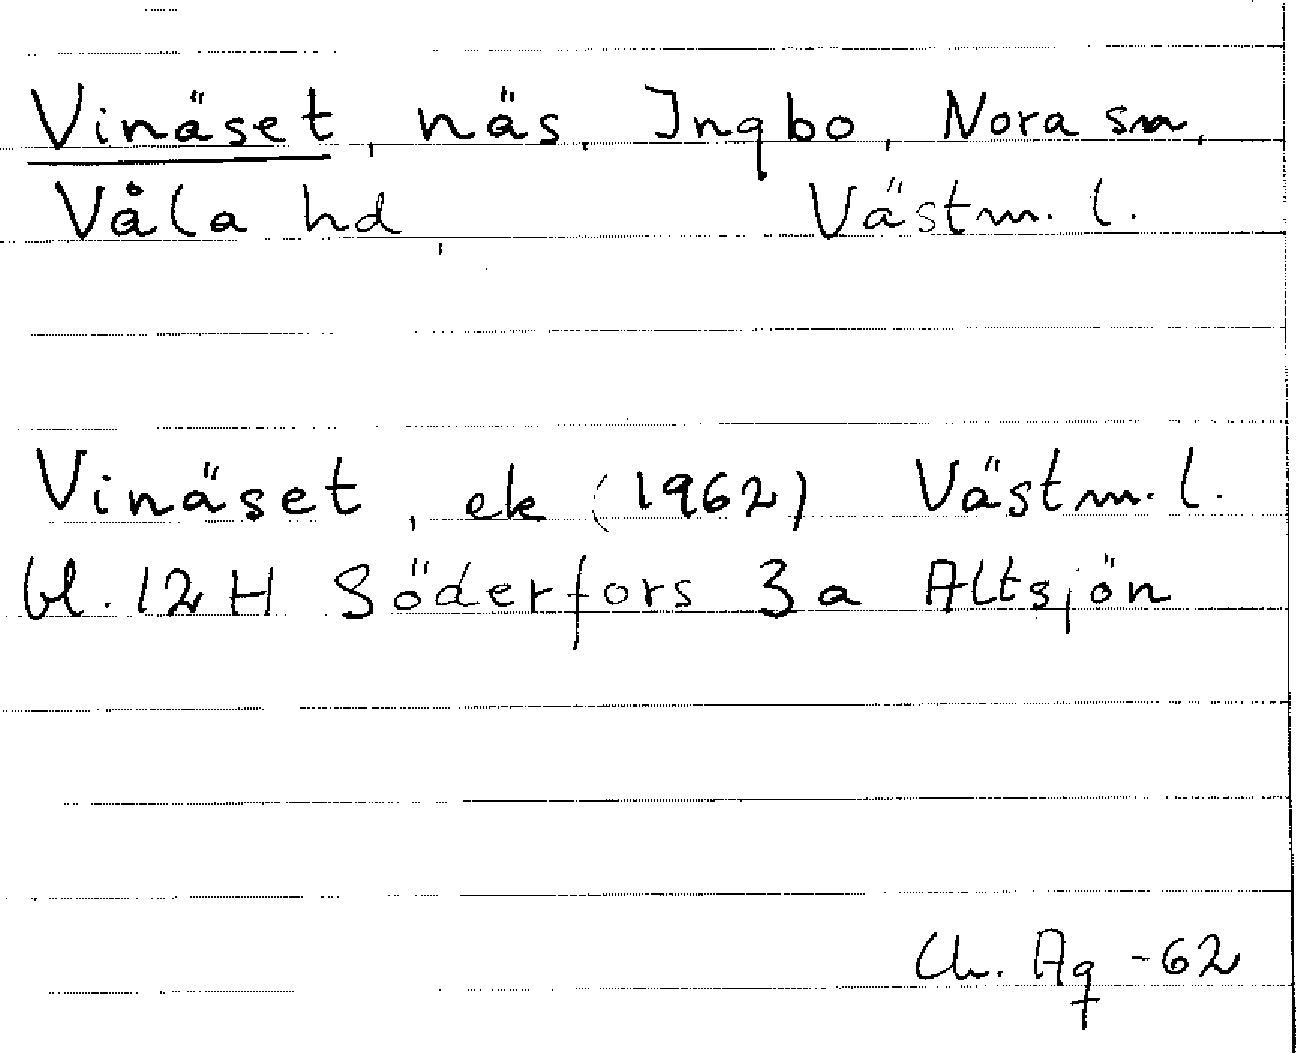 Vinäset, näs, Ingbo, Nora sn,
Våla hd, Västm. l.
Vinäset, ek (1962) Västm. l.
bl. 12 H Söderfors 3 a Altsjön
Ch. Ag -62